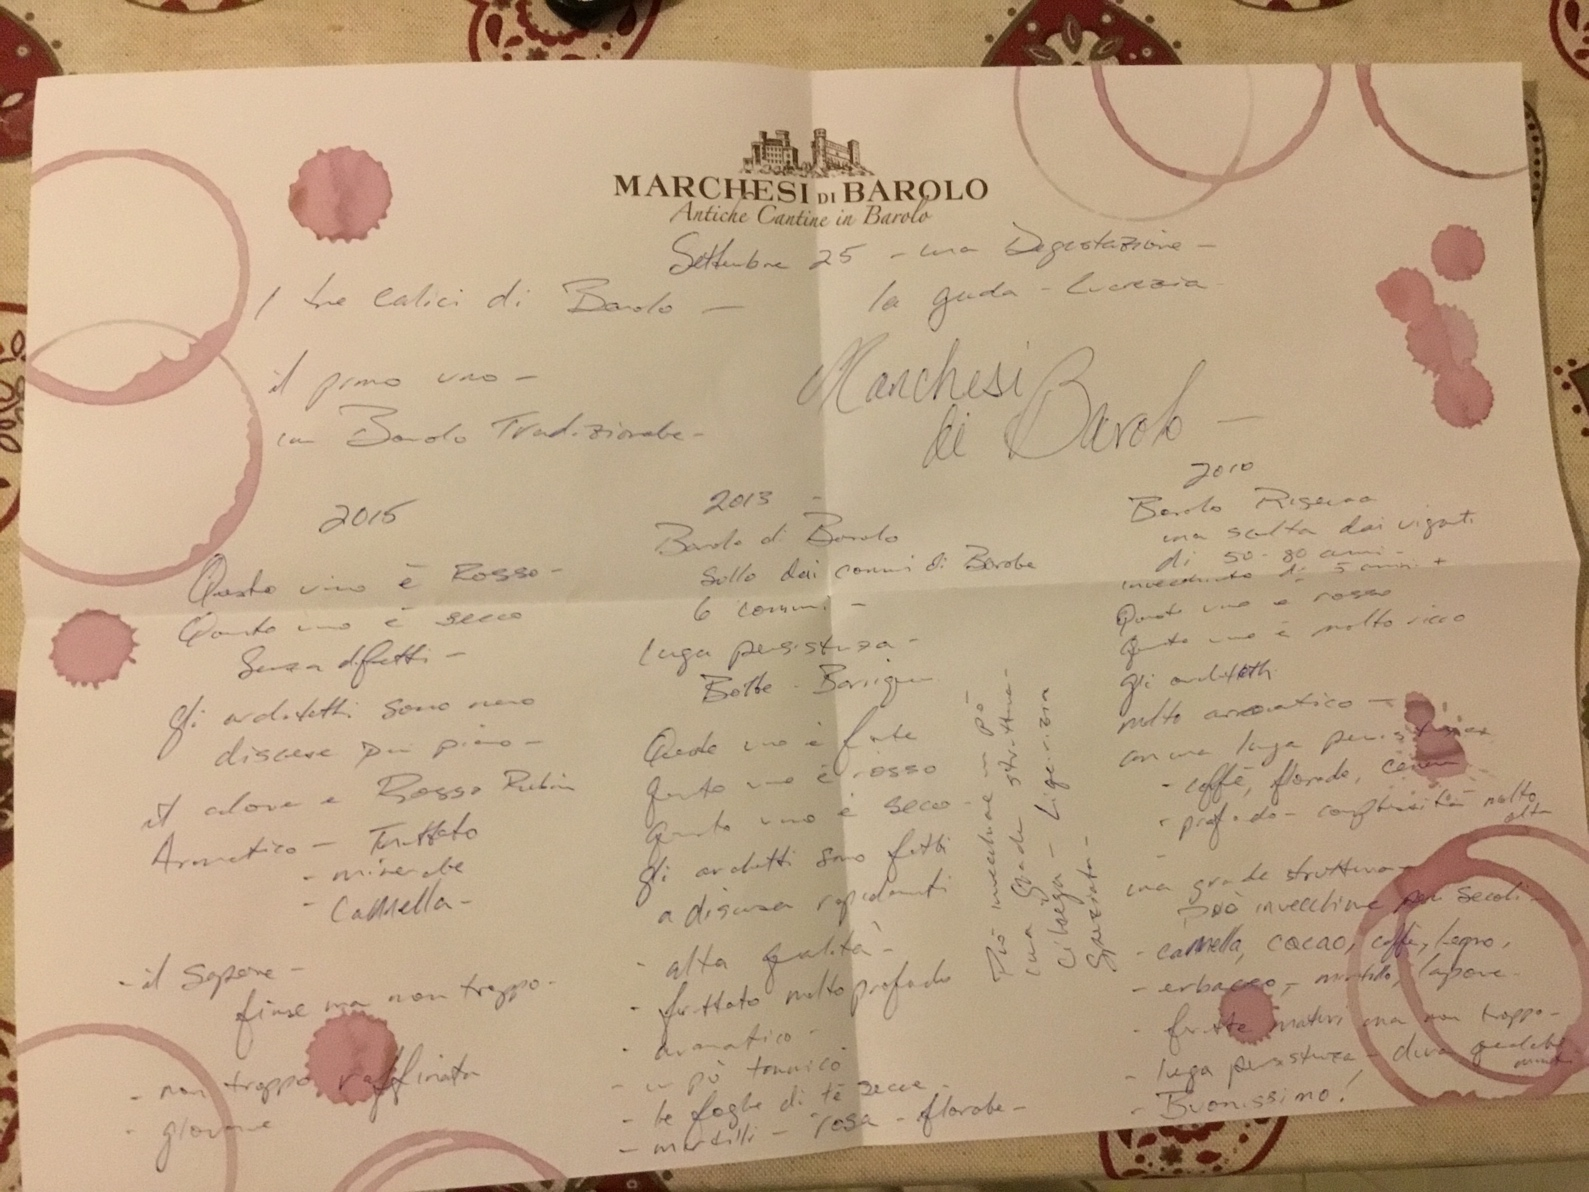 MARCHESI DI BAROLO
Antiche Cantine in Barolo
Settembre 25 - una Degustazione -
I tre calici di Barolo -
la guida - Lucrezia -
il primo uno -
un Barolo Tradizionale -
Marchesi
di Barolo -
2015
Questo vino è Rosso -
Questo vino è secco
Senza difetti -
gli architetti sono
discese piu piano -
il colore e Rosso Rubin
Aromatico - Fruttato
- minerale
- Cannella -
- il sapore -
fine ma non troppo -
- non troppo raffinata
- giovane
2013 -
Barolo di Barolo
sollo dai comuni di Barolo
6 comuni -
luga persistenza -
Botte - Barrique
Questo vino è forte
Questo vino è rosso
Questo vino è secco -
gli architetti sono fatti
a discesa rapidamenti
- alta qualità -
- fruttato molto profondo
- aromatico -
- un pò tannico
- le foglie di tè secce -
- mirtilli - rosa - florale -
Più invecchiare un pò
una grande struttura -
Ciliegia - Liquirizia
Speziata -
2010
Barolo Riserva
una scelta dai vigneti
di 50-80 anni -
invecchiato di 5 anni +
Questo vino e rosso
Questo vino è molto ricco
gli architetti
molto aromatico -
ancora luga persistenza
- caffè, florade,
- profondo - complessità molto
alta
- una grade struttura -
Può invecchiare per secoli -
- cannella, cacao, caffè, legno,
- erbaceo, - mirtillo,
- frutte maturi ma non troppo -
- luga persistenza - dura qualche
minuti
- Buonissimo!